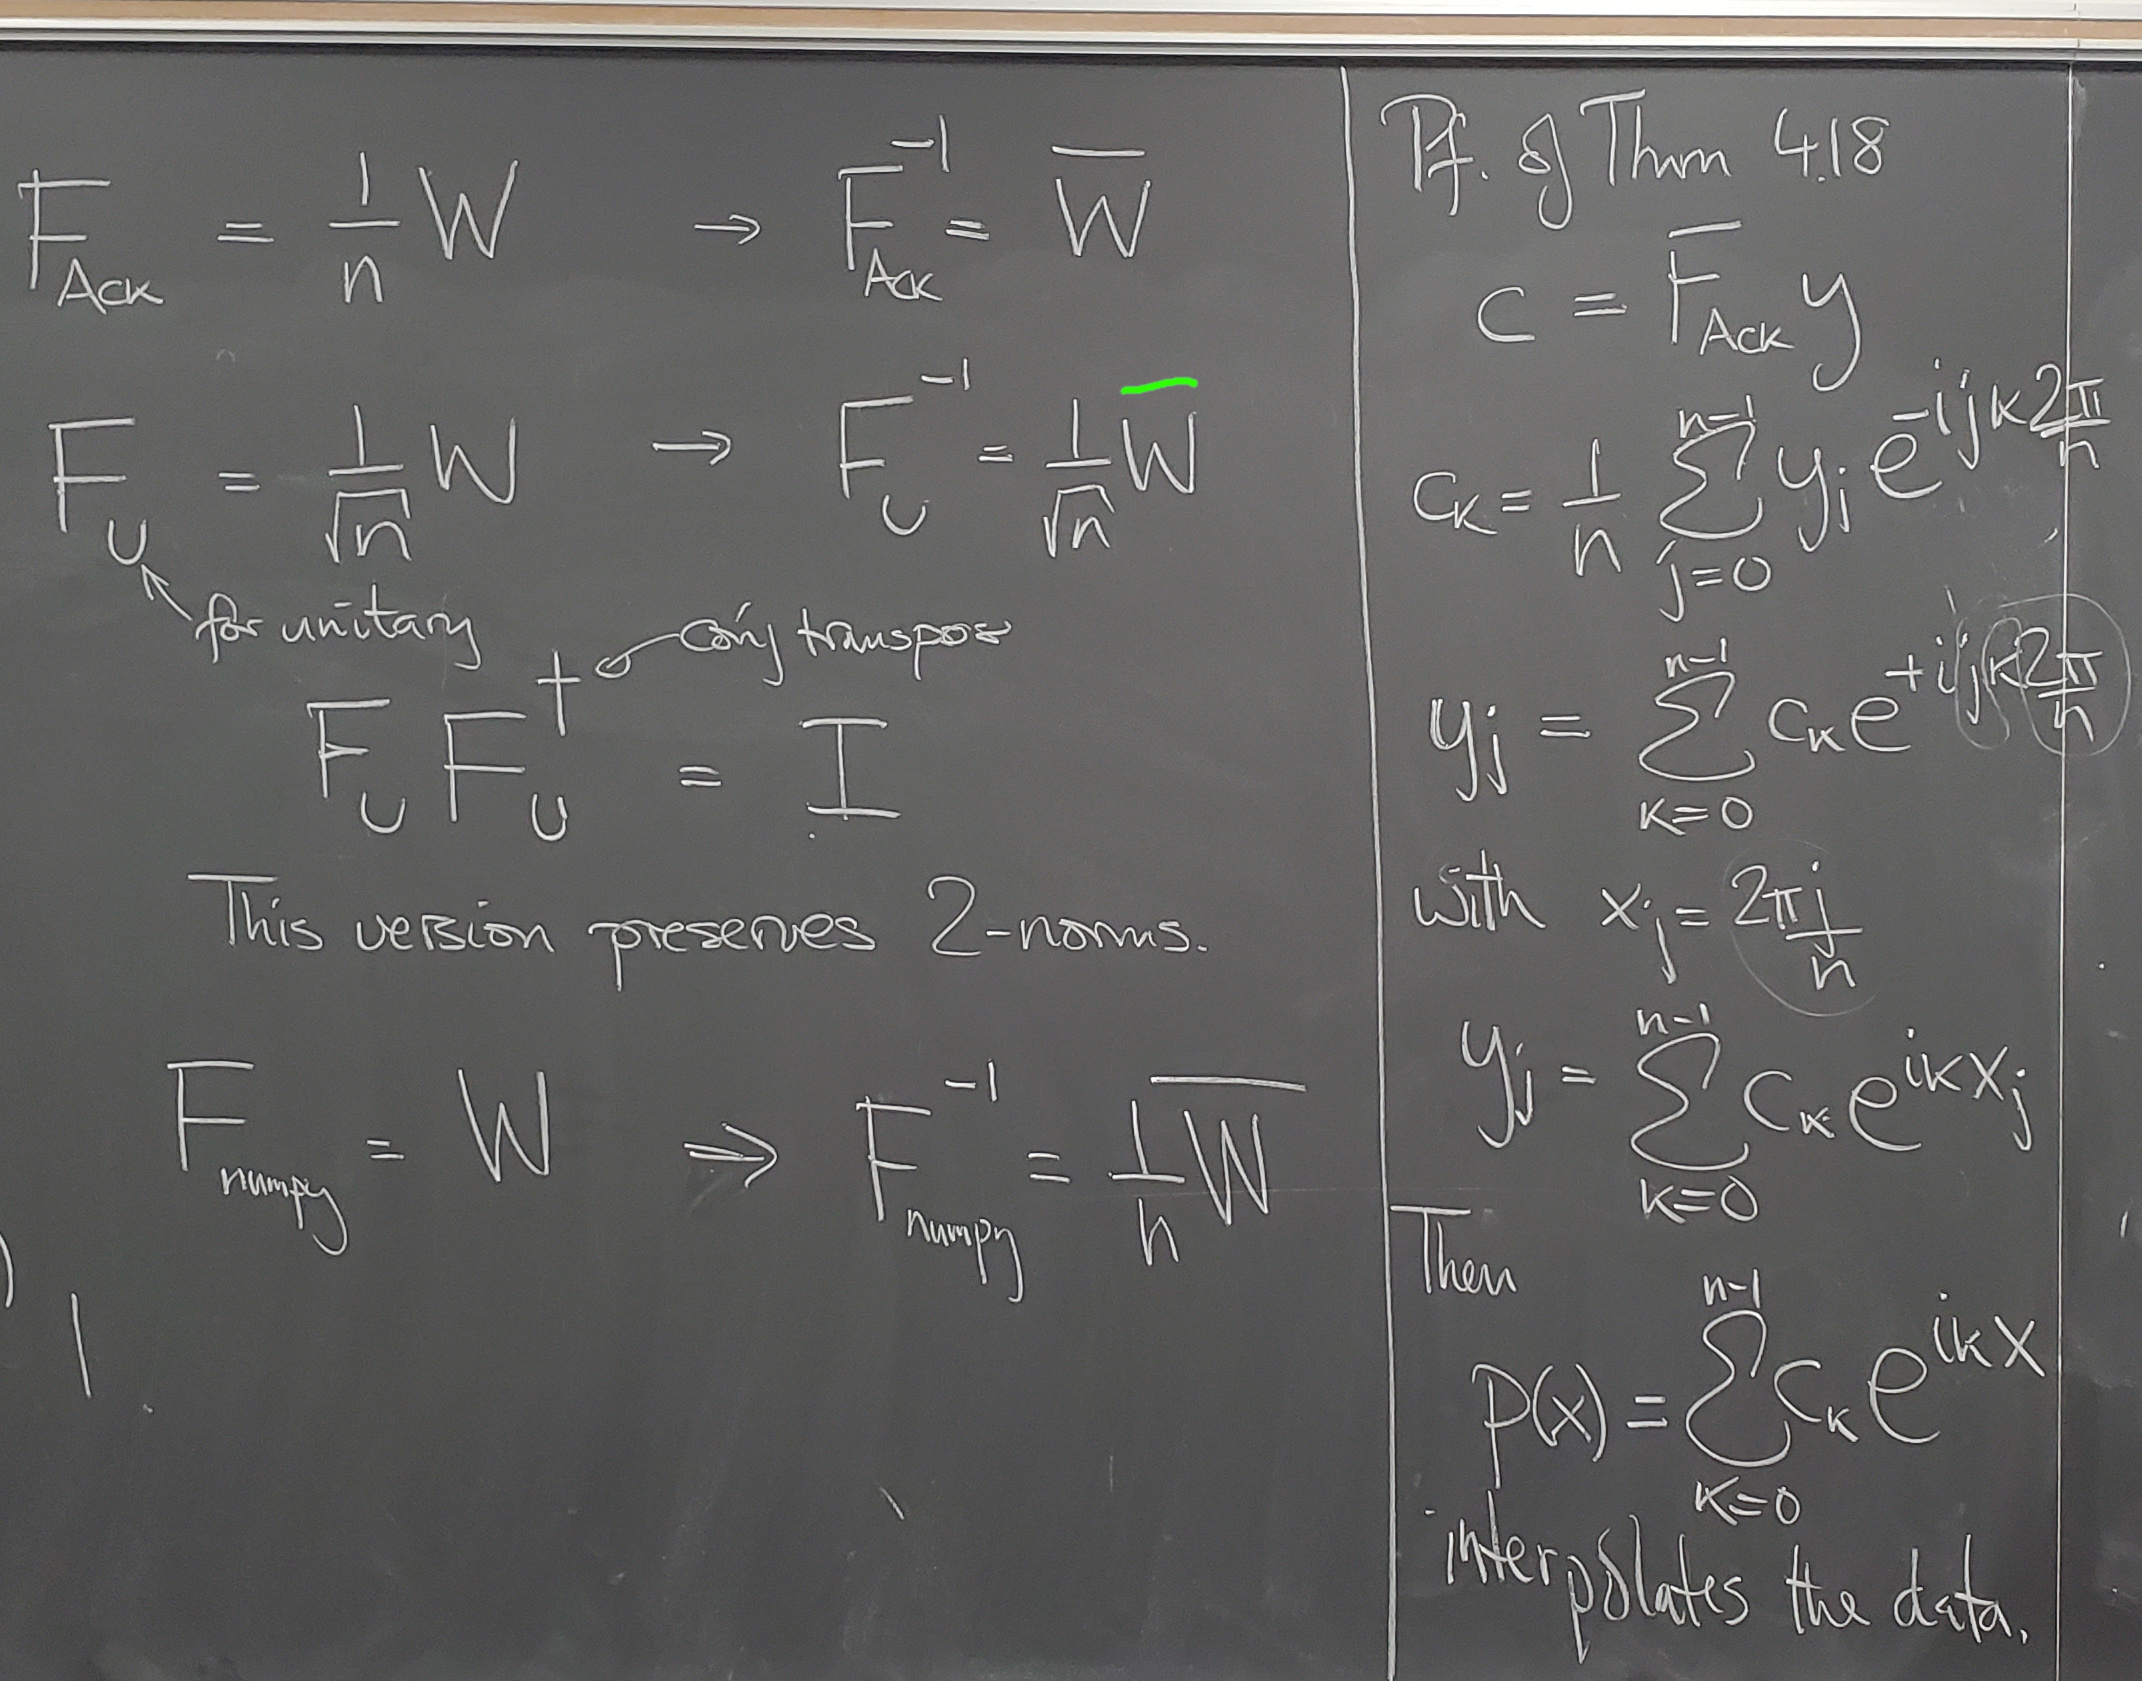 F_Ack = 1/n W → F_Ack^-1 = W̅
F_U = 1/√n W → F_U^-1 = 1/√n W̅
for unitary
conj transpose
F_U F_U^† = I
This version preserves 2-norms.
F_numpy = W ⇒ F_numpy^-1 = 1/n W̅
Pf. of Thm 4.18
c = F̅_Ack y
c_k = 1/n ∑_{j=0}^{n-1} y_j e^{-ijk 2π/n}
y_j = ∑_{k=0}^{n-1} c_k e^{+ijk 2π/n}
with x_j = 2πj/n
y_j = ∑_{k=0}^{n-1} c_k e^{ikx_j}
Then
P(x) = ∑_{k=0}^{n-1} c_k e^{ikx}
interpolates the data.